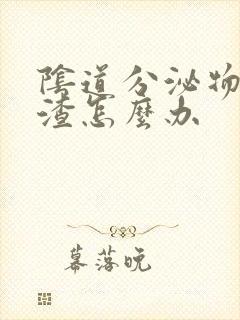 陰道分泌物
渣怎麼办
幕落晚